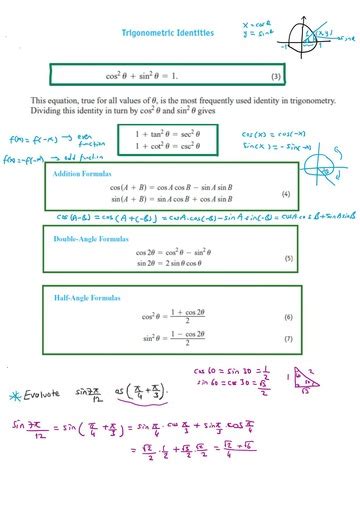 Trigonometric Identities
x = cosθ
y = sinθ
(x,y)
-1
1
cos² θ + sin² θ = 1. (3)
This equation, true for all values of θ, is the most frequently used identity in trigonometry.
Dividing this identity in turn by cos² θ and sin² θ gives
f(x) = f(-x) → even function
f(x) = -f(-x) → odd function
1 + tan² θ = sec² θ
1 + cot² θ = csc² θ
cos(x) = cos(-x)
sin(x) = -sin(-x)
Addition Formulas
cos(A + B) = cos A cos B − sin A sin B
sin(A + B) = sin A cos B + cos A sin B
(4)
cos(A-B) = cos(A+(-B)) = cosA.cos(-B) - sinA sin(-B) = cosA cosB + sinA sinB
Double-Angle Formulas
cos 2θ = cos² θ − sin² θ
sin 2θ = 2 sin θ cos θ
(5)
Half-Angle Formulas
cos² θ = (1 + cos 2θ)/2 (6)
sin² θ = (1 − cos 2θ)/2 (7)
cos 60 = sin 30 = 1/2
sin 60 = cos 30 = √3/2
1
2
√3
* Evaluate sin 7π/12 as (π/4 + π/3).
sin 7π/12 = sin(π/4 + π/3) = sin π/4 . cos π/3 + sin π/3 cos π/4
= √2/2 . 1/2 + √3/2 . √2/2 = √2 + √6/4